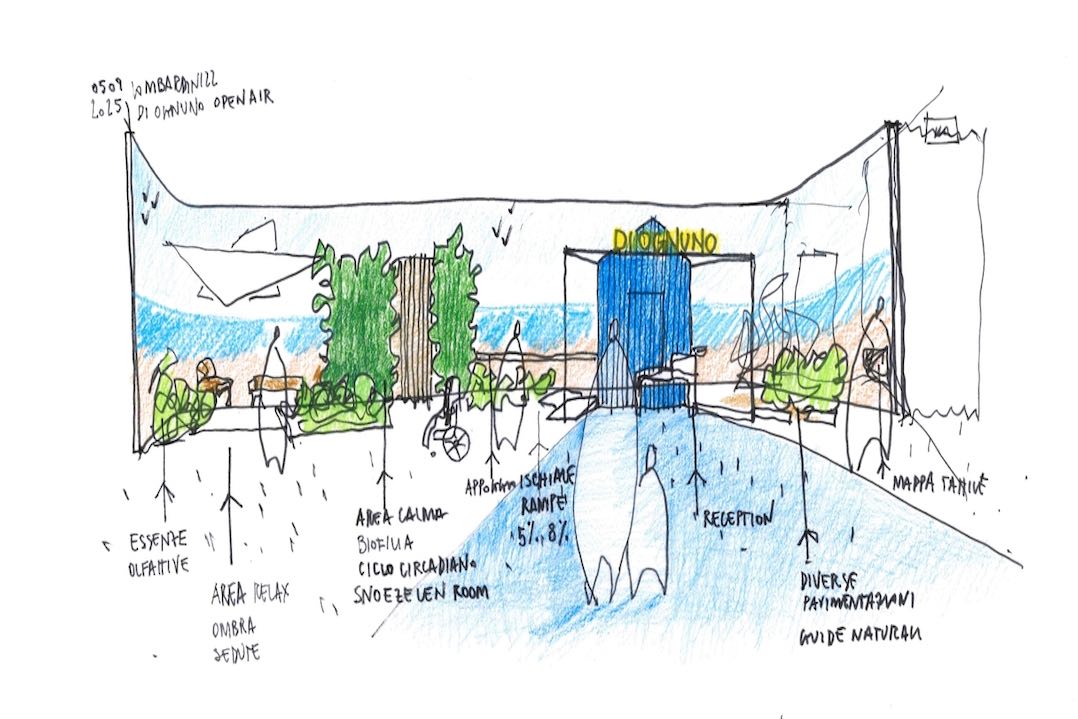 0509
2025
LOMBARDINI22
DI OGNUNO OPEN AIR
DI OGNUNO
ESSENZE
OLFATTIVE
AREA RELAX
OMBRA
SEDUTE
AREA CALMA
BIOFILIA
CICLO CIRCADIANO
SNOEZELEN ROOM
ISCHIATE
RAMPE
5%, 8%
RECEPTION
DIVERSE
PAVIMENTAZIONI
GUIDE NATURALI
MAPPA TATTILE